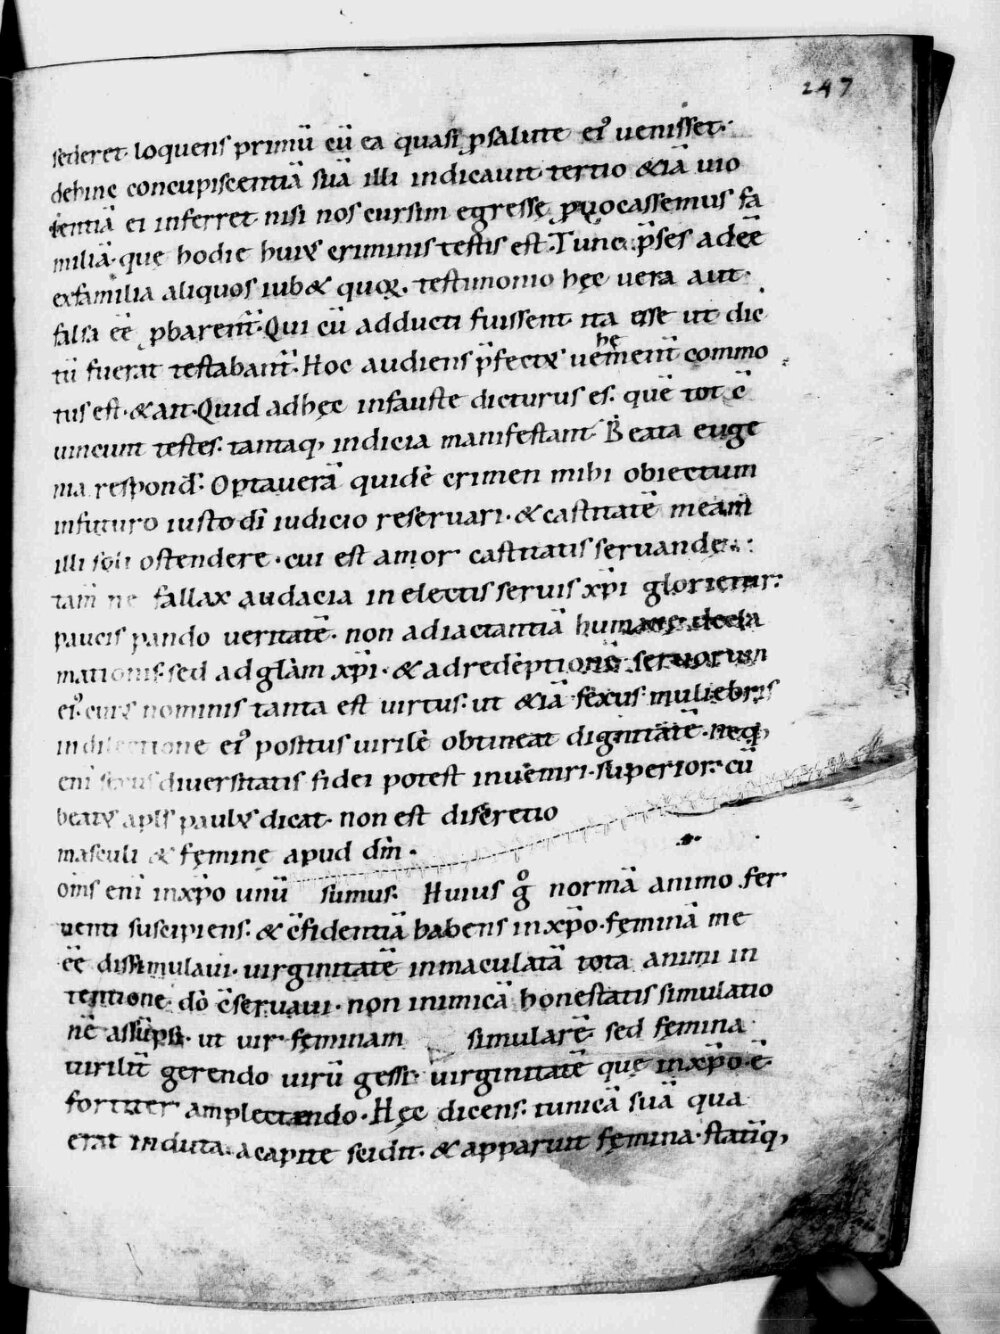 247
sederet. loquens primū cū ea quasi p̱salute ei᷒ uenisset.
dehinc concupiscentiā suā illi indicauit. tertio &iā uio
lentiā ei inferret nisi nos cursim egressę ꝓuocassemus fa
miliā. quę hodie hui᷒ criminis testis est. Tunc p̄ses a deē
exfamilia aliquos iub& quoꝝ. testimonio hęc uera aut
falsa eē ꝓbarent᷑. Qui cū adducti fuissent. ita esse ut dic
tū fuerat testabant᷑. Hoc audiens p̄fect᷒ uehement̄ commo
tus est. & ait. Quid adhęc infauste dicturus es. quē tot c̄
uincunt testes. tantaq; indicia manifestant. Beata euge
nia respond̄. Optauerā quidē crimen mihi obiectum
infuturo iusto dī iudicio reseruari. & castitatē meam
illi soli ostendere. cui est amor castitatis seruandę.
tam̄ ne fallax audacia in electis seruis xp̄i glorietur.
paucis pando ueritatē. non adiactantiā humanę decla
mationis. sed adglām xp̄i. & adredēptionē seruorum
ei᷒. cui᷒ nominis tanta est uirtus. ut &iā sexus muliebris
indilectione ei᷒ positus uirilē obtineat dignitatē. neq;
eni sexus diuersitatis fidei potest inueniri superior. cū
beat᷒ apls̄ paul᷒ dicat. non est discretio
masculi & feminę apud dm̄.
om̄s enī inxp̄o unū sumus. Huius g͛ normā animo fer
uenti suscipiens. & c̄fidentiā habens inxp̄o. feminā me
eē dissimulaui. uirginitatē inmaculatā tota animi in
tentione. dō c̄seruaui. non inimicā honestatis simulatio
nē assūpsi. ut uir feminam simularē sed femina
uirilit̄ gerendo uirū gessi. uirginitatē que inxp̄o ē.
fortiter amplectando. Hęc dicens. tunicā suā qua
erat induta. acapite scidit. & apparuit femina. statīq;